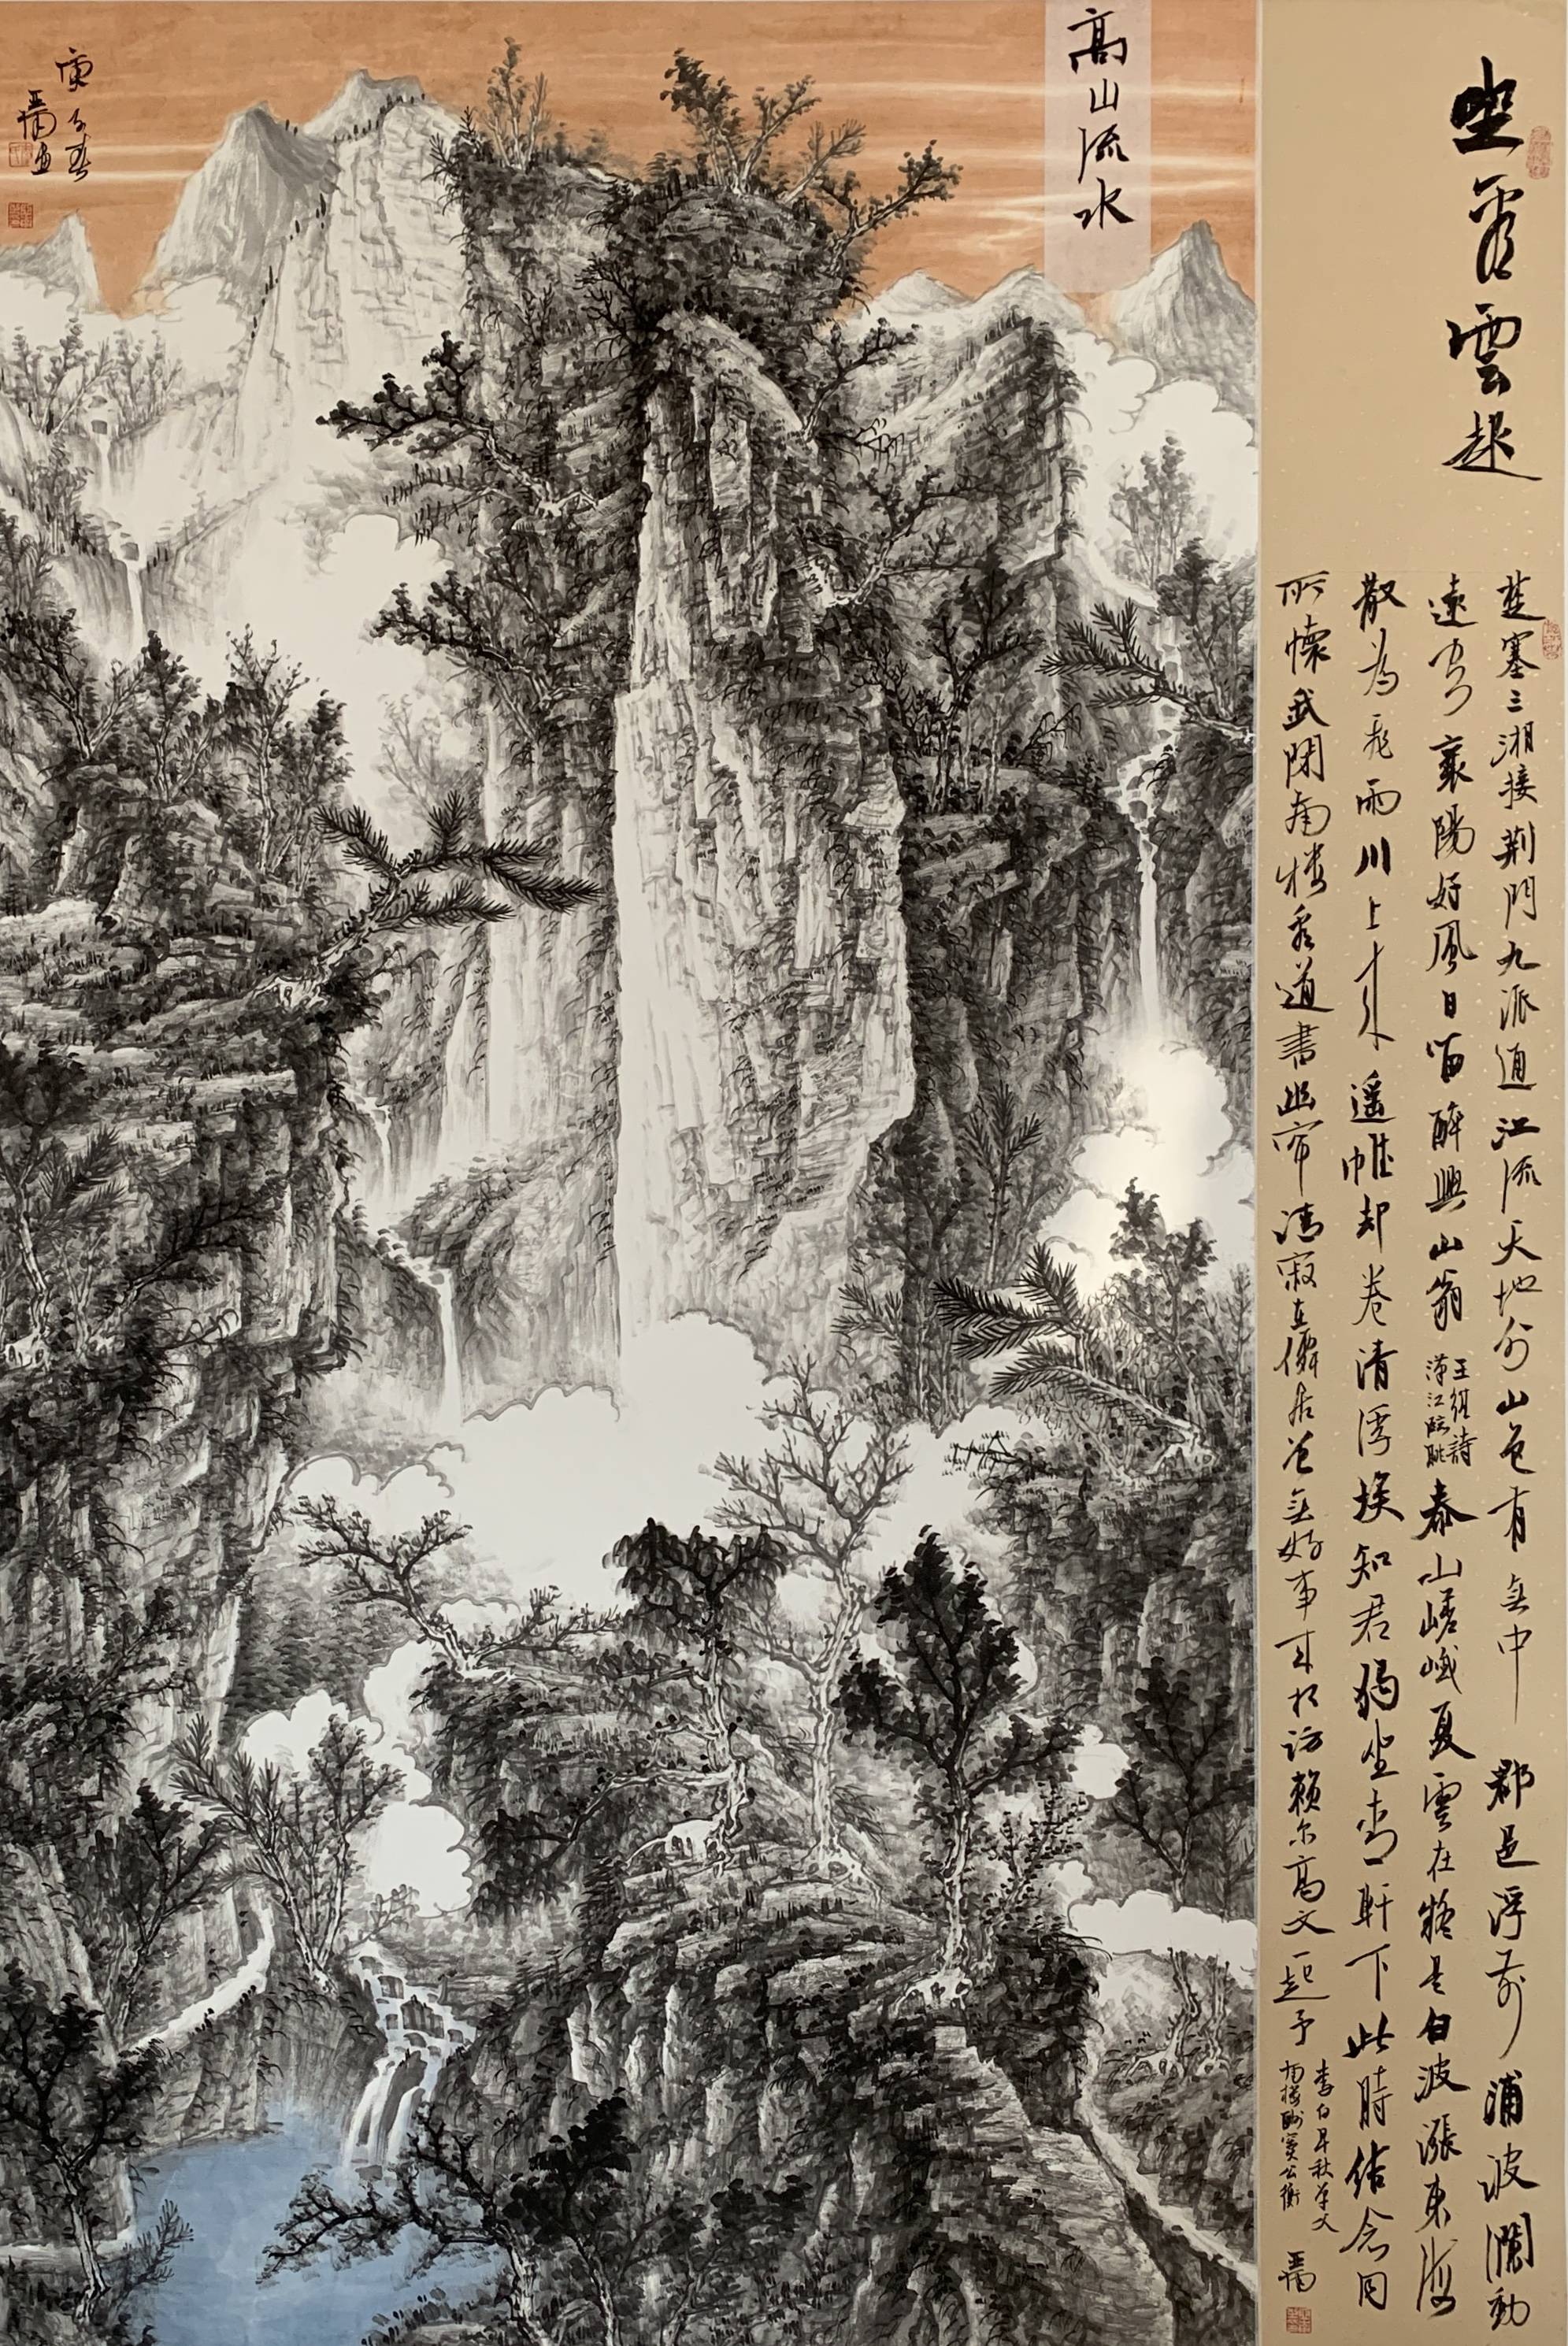 坐看雲起
楚塞三湘接荆門九派通江流天地外山色有无中郡邑浮前浦波瀾動
遠空襄陽好風日留醉興山翁
王維詩
漢江臨眺
泰山嵯峨夏雲在疑是白波漲東海
散为飛雨川上來遥帷却卷清浮埃知君獨坐青軒下此時结念同
所懷我閉南楼看道書幽帘清寂在僊居曾无好事来相訪赖尔高文一起予
李白早秋單父
南樓酬竇公衡
高山流水
庚子春
画